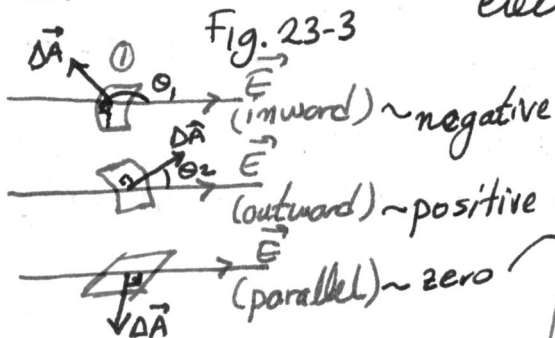 elec
Fig. 23-3
ΔA⃗ ① θ₁ E⃗
(inward) ~ negative
ΔA⃗ θ₂ E⃗
(outward) ~ positive
E⃗
(parallel) ~ zero
ΔA⃗